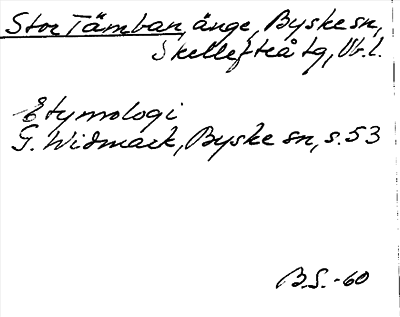 Stor Tämban, änge, Byske sn,
Skellefteå tg, Vb.l.
Etymologi
G. Widmark, Byske sn, s. 53
B.S. -60